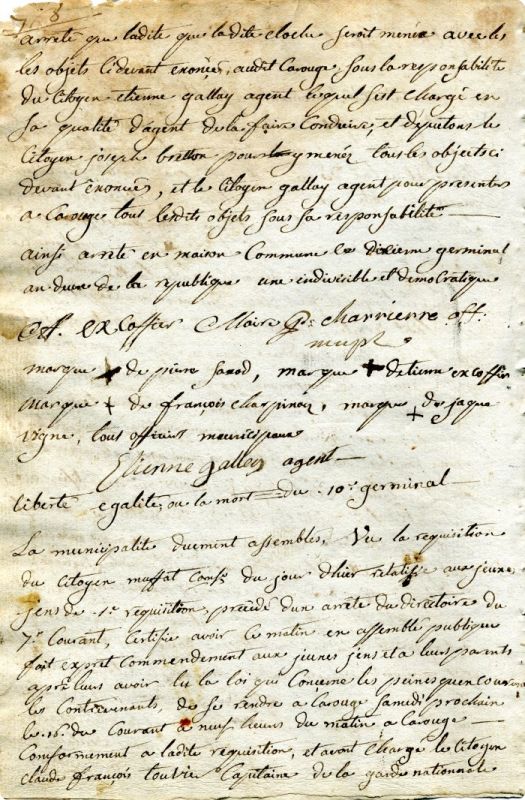 arreté que ladite que ladite cloche seroit menée avec les
les objets cidevant enonces, audit Carouge, sous la responsabilité
du Citoyen etienne gallay agent lequel s'est Chargé en
sa qualité d'agent de la faire Conduire, et deputons le
Citoyen joseph bretton pour y menéz tous les objects ci
devant énoncées, et le Citoyen gallay agent pour presenter
a Carouge tous lesdits objets sous sa responsabilité
ainsi arreté en maison Commune le dixieme germinal
an deux de la republique une indivisible et democratique
excoffier Maire charriere off.
munpl
marque + de pierre sanod, marque + detienne excoffier
marque + de françois charpinaz, marque + de jaque
vigne, tous officiers municipaux
Etienne gallay agent
liberté egalité, ou la mort = du 10e. germinal
La municipalité duement assemblés, Vu la requisition
du Citoyen muffat du jour dhier relatifve aux jeune
jens de 1e requisition, précédé d'un arreté du directoire du
7e. Courant, Certifie avoir Ce matin en assemblé publique
fait expret Commendement aux jeunes jens et a leurs parents
après leurs avoir lu la loi qui Concerne les peines quencourent
les Contrevenants, de se rendre a Carouge samedi prochain
le 15. du Courant a neuf heurs du matin a Carouge
Conformement a ladite requisition, et avons Chargé le Citoyen
claude françois Capitaine de la garde nationale